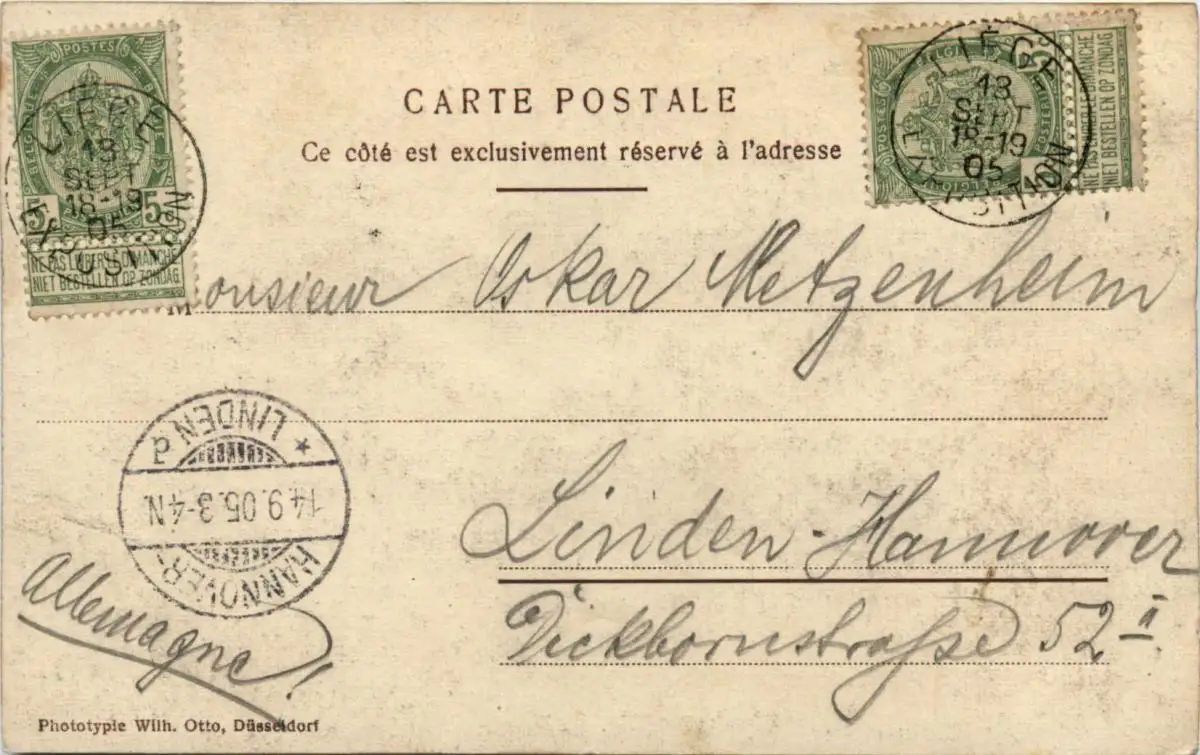 POSTES
BELGIQUE BELGIË
5 5
NE PAS LIVRER LE DIMANCHE
NIET BESTELLEN OP ZONDAG
LIÉGE
13
SEPT
18-19
05
EXPOSITION
BELGIQUE
5
NE PAS LIVRER LE DIMANCHE
NIET BESTELLEN OP ZONDAG
LIÉGE
13
SEPT
18-19
05
EXPOSITION
CARTE POSTALE
Ce côté est exclusivement réservé à l'adresse
Monsieur Oskar Metzenheim
HANNOVER-
14.9.05.3-4N.
* LINDEN d
Linden-Hannover
Dickbornstraße 52 II
Allemagne!
Phototypie Wilh. Otto, Düsseldorf